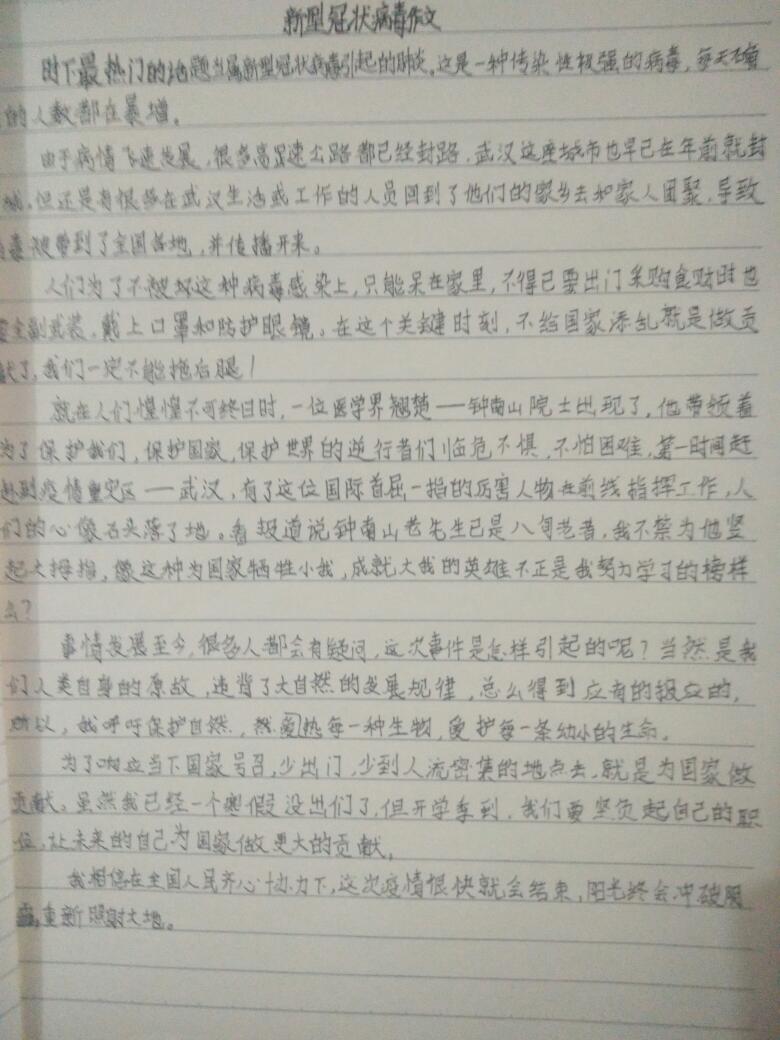 新型冠状病毒作文
时下最热门的话题当属新型冠状病毒引起的肺炎。这是一种传染性极强的病毒，每天
的人数都在暴增。
由于病情飞速发展，很多高速公路都已经封路，武汉这座城市也早已在年前就封
城。但还是有很多在武汉生活或工作的人员回到了他们的家乡去和家人团聚，导致
毒被带到了全国各地，并传播开来。
人们为了不被这种病毒感染上，只能呆在家里，不得已要出门采购食财时也
要全副武装，戴上口罩和防护眼镜。在这个关键时刻，不给国家添乱就是做贡
献了，我们一定不能拖后腿！
就在人们惶惶不可终日时，一位医学界翘楚——钟南山院士出现了，他带领着
为了保护我们，保护国家，保护世界的逆行者们临危不惧，不怕困难，第一时间赶
赴到疫情重灾区——武汉，有了这位国际首屈一指的厉害人物在前线指挥工作，人
们的心像石头落了地。看报道说钟南山老先生已是八旬老者，我不禁为他竖
起大拇指，像这种为国家牺牲小我，成就大我的英雄不正是我努力学习的榜样
么？
事情发展至今，很多人都会有疑问，这次事件是怎样引起的呢？当然是我
们人类自身的原故，违背了大自然的发展规律，总么得到应有的报应的，
所以，我呼吁保护自然，热爱每一种生物，爱护每一条幼小的生命。
为了响应当下国家号召，少出门，少到人流密集的地点去，就是为国家做
贡献。虽然我已经一个寒假没出们了，但开学季到，我们要坚负起自己的职
位，让未来的自己为国家做更大的贡献。
我相信在全国人民齐心协力下，这次疫情很快就会结束，阳光终会冲破
重新照射大地。